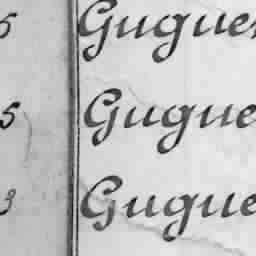 5 Gugue
5 Gugue
3 Gugue